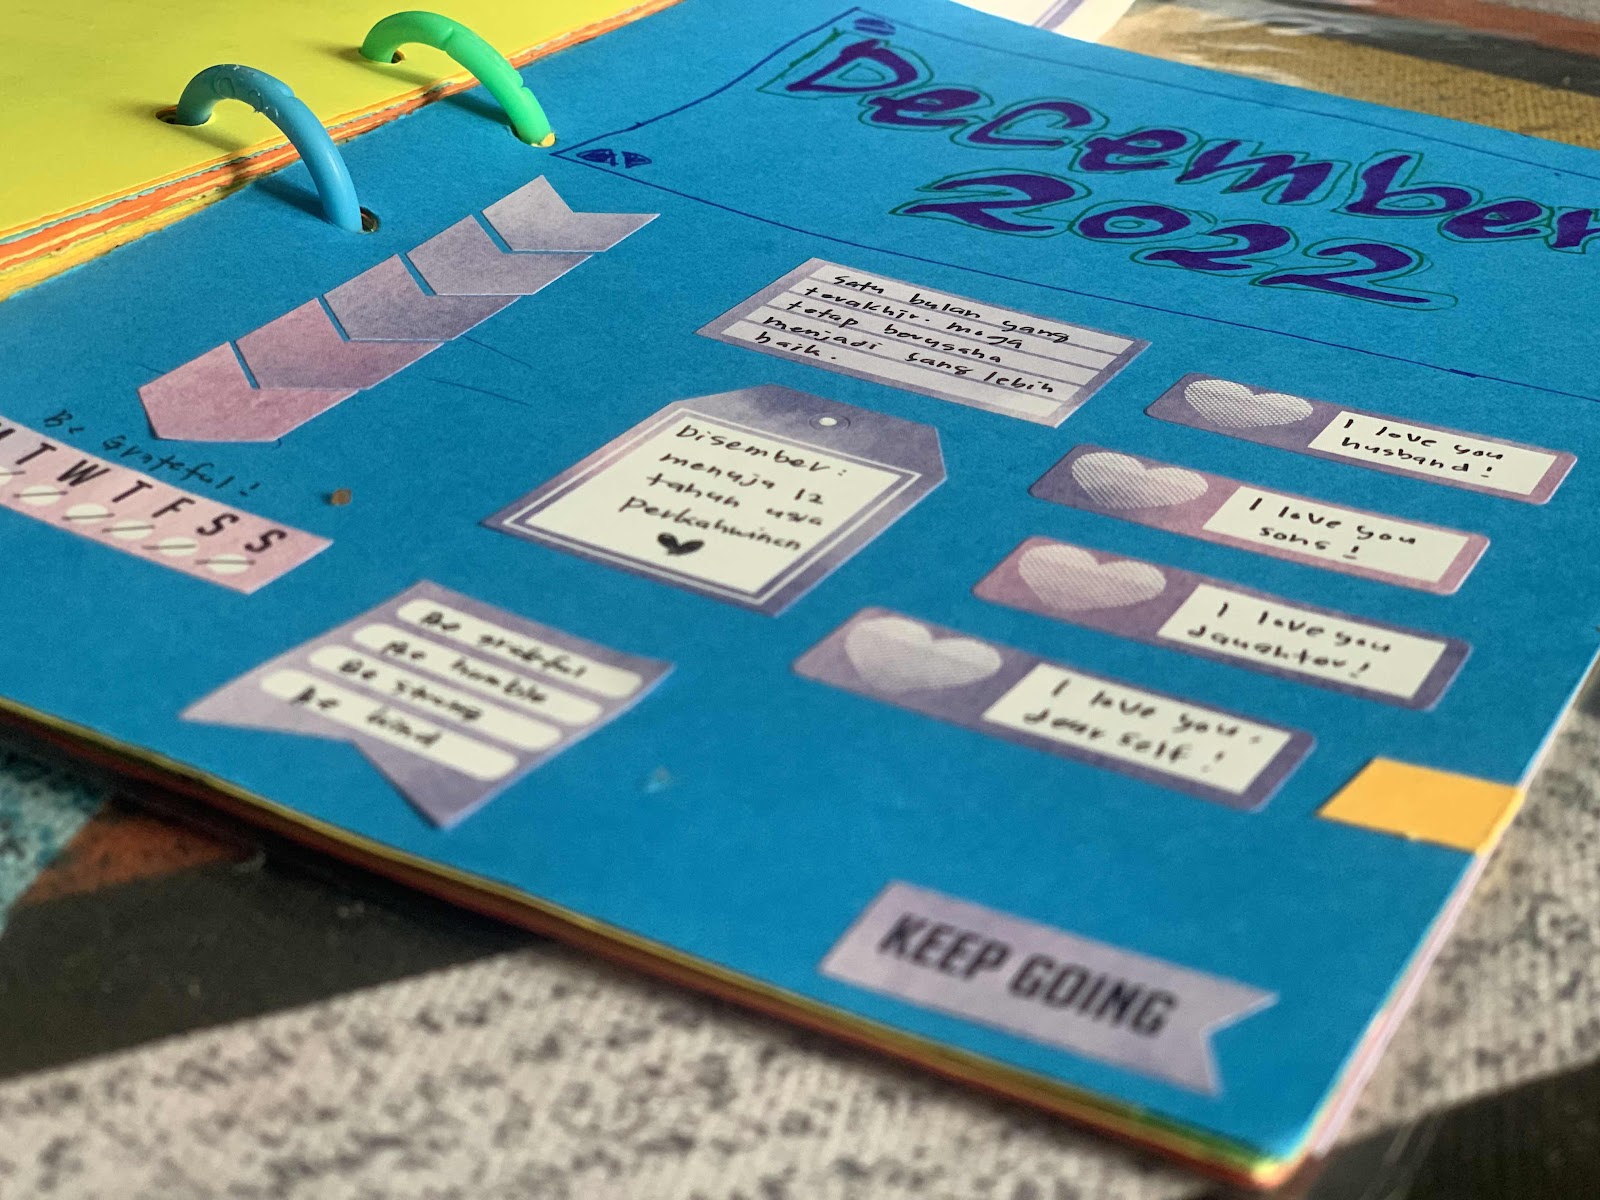 December
2022
satu bulan yang
terakhir. moga
tetap berusaha
menjadi sang lebih
baik.
I love you
husband!
I love you
sons!
I love you
daughter!
I love you.
dear self!
Disember:
menuju 12
tahun usia
perkahwinan
Be Grateful!
M T W T F S S
Be grateful
Be humble
Be strong
Be kind
KEEP GOING